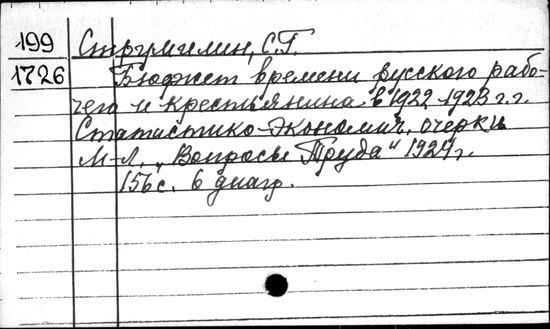 199 Струмилин, С.Г.
1726 Бюджет времени русского рабо-
чего и крестьянина в 1922-1923 г.г.
Статистико-экономич. очерки
М-Л. „Вопросы Труда" 1924 г.
156 с. 6 диагр.